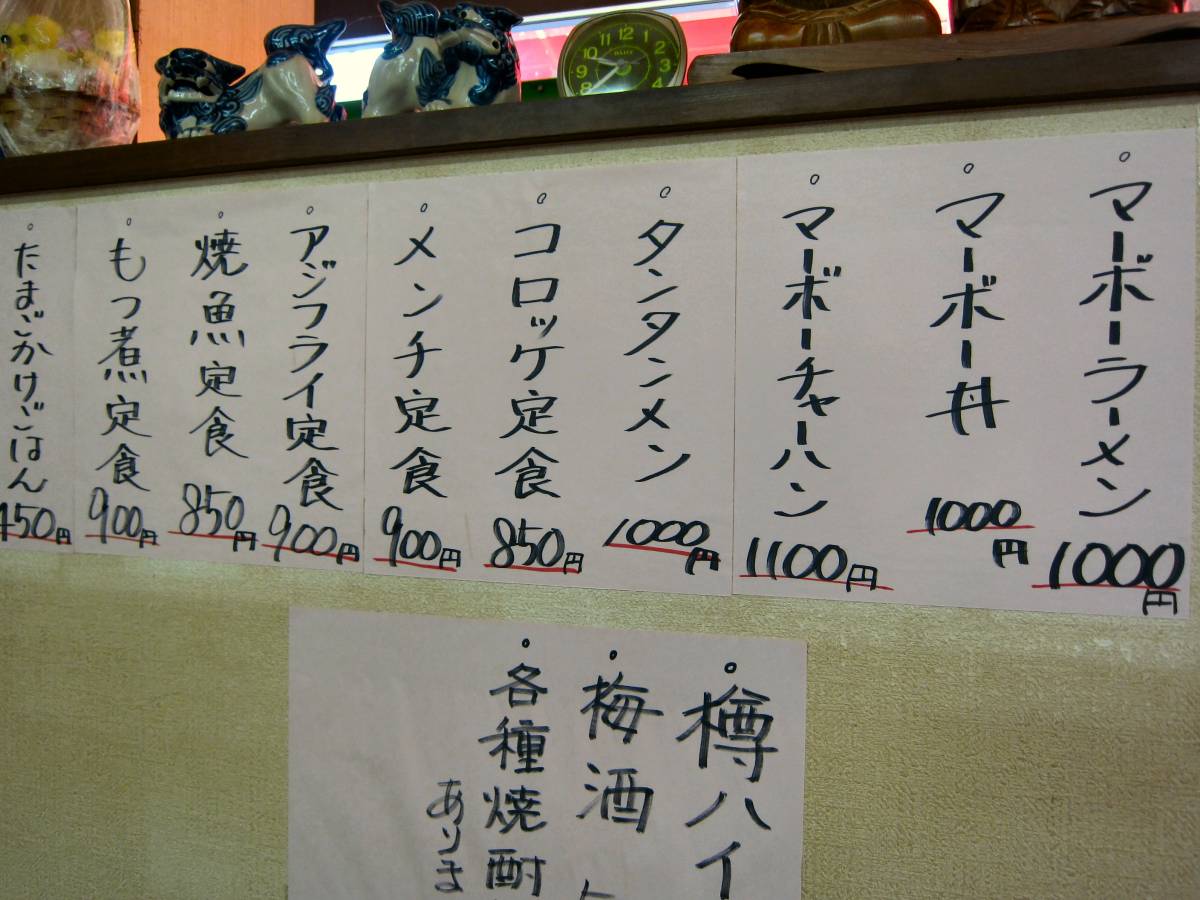 。マーボーラーメン 1000円
。マーボー丼 1000円
。マーボーチャーハン 1100円
。タンタンメン 1000円
。コロッケ定食 850円
。メンチ定食 900円
。アジフライ定食 900円
。焼魚定食 850円
。もつ煮定食 900円
。たまごかけごはん 450円
。樽ハイ
。梅酒
。各種焼酎
ありま